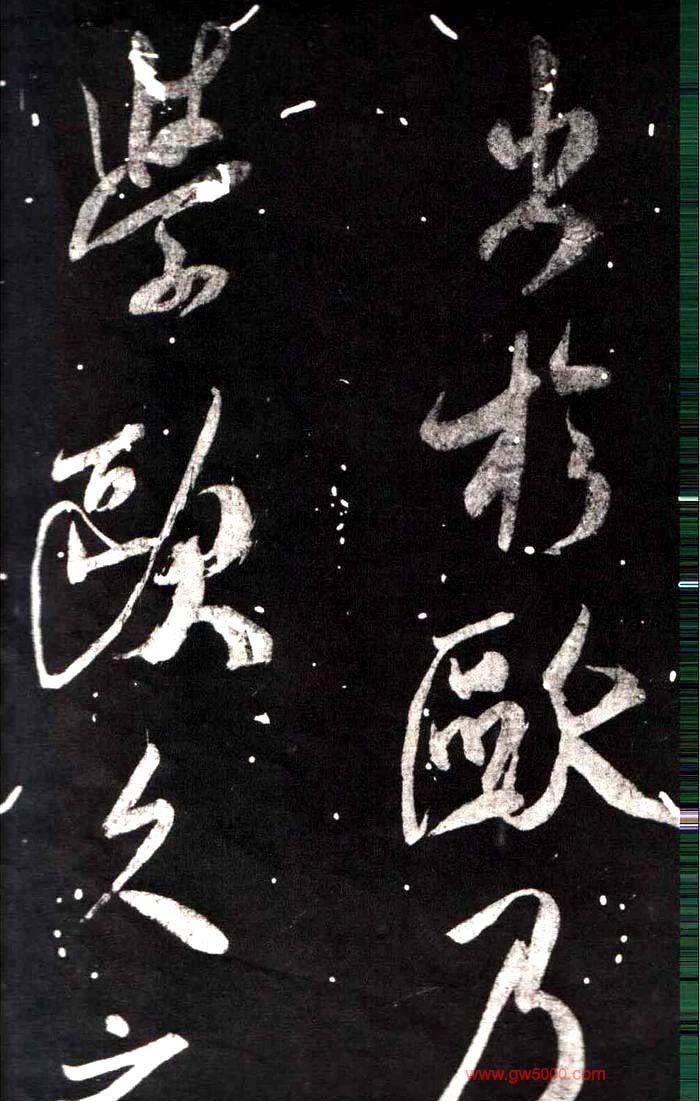 出於歐乃
學歐久之
www.gw5000.com